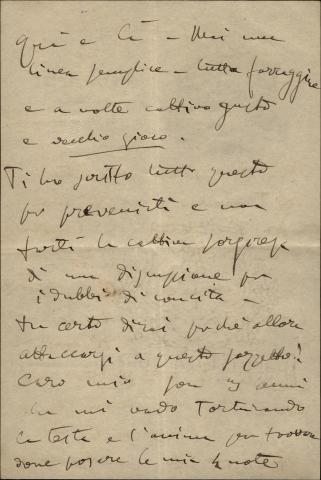 quà e là – Mai una
linea semplice – tutta farraggine
e a volte cattivo gusto
e vecchio gioco.
Ti ho scritto tutto questo
per prevenirti e non
farti la cattiva sorpresa
di una disillusione per
i dubbi di
tu certo dirai perchè allora
attaccarsi a questo soggetto?
Caro mio son 3 anni
che mi vado torturando
la testa e l'anima per trovare
dove posare le mie 4 note